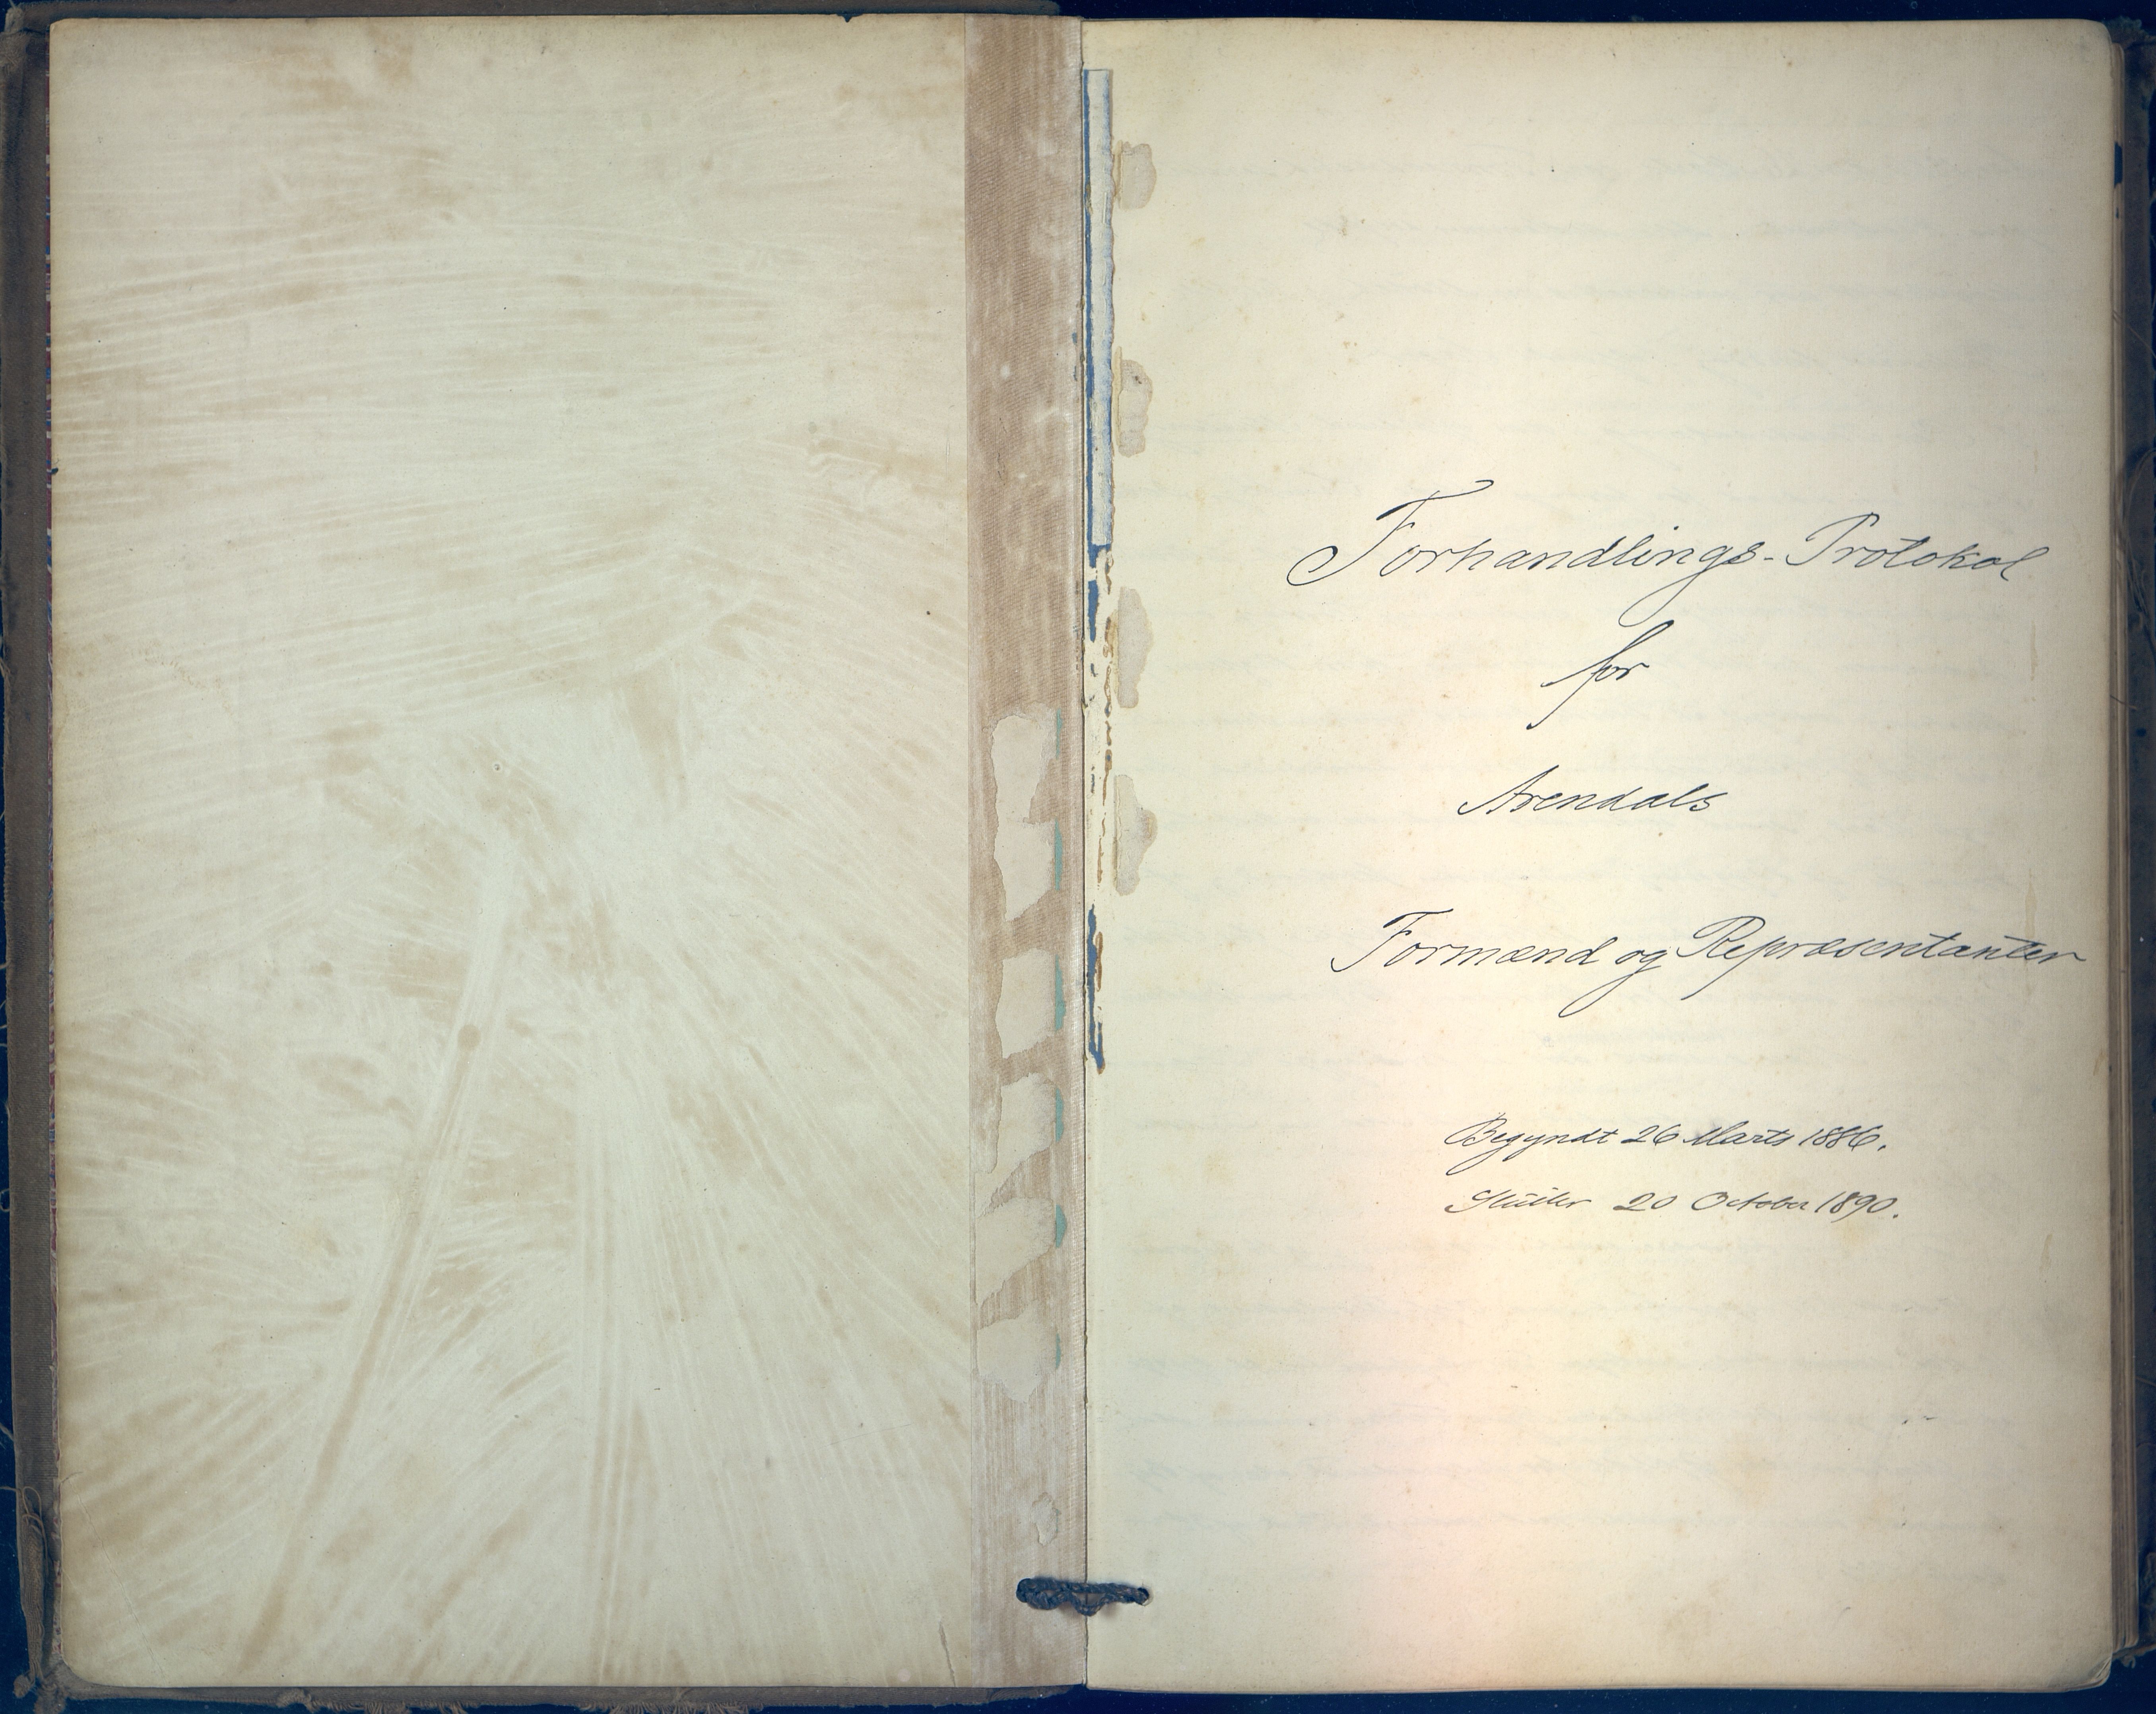 Forhandlings-Protokol
for
Arendals
Formænd og Repræsentanter
Begyndt 26 Marts 1886.
Slutter 20 October 1890.